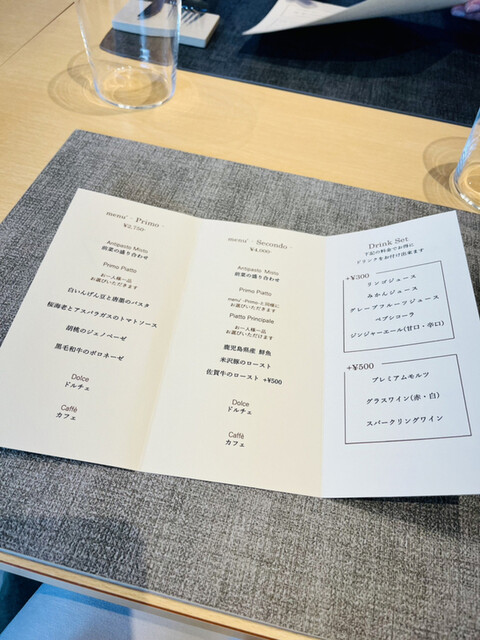 menu' - Primo -
¥2,750-
Antipasto Misto
前菜の盛り合わせ
Primo Piatto
お一人様一品
お選びいただきます
白いんげん豆と唐墨のパスタ
桜海老とアスパラガスのトマトソース
胡桃のジェノベーゼ
黒毛和牛のボロネーゼ
Dolce
ドルチェ
Caffè
カフェ
menu' - Secondo -
¥4,000-
Antipasto Misto
前菜の盛り合わせ
Primo Piatto
menu' -Primo-と同様に
お選びいただきます
Piatto Principale
お一人様一品
お選びいただけます
鹿児島県産 鮮魚
米沢豚のロースト
佐賀牛のロースト +¥500
Dolce
ドルチェ
Caffè
カフェ
Drink Set
下記の料金でお得に
ドリンクをお付け出来ます
+¥300
リンゴジュース
みかんジュース
グレープフルーツジュース
ペプシコーラ
ジンジャーエール(甘口・辛口)
+¥500
プレミアムモルツ
グラスワイン(赤・白)
スパークリングワイン